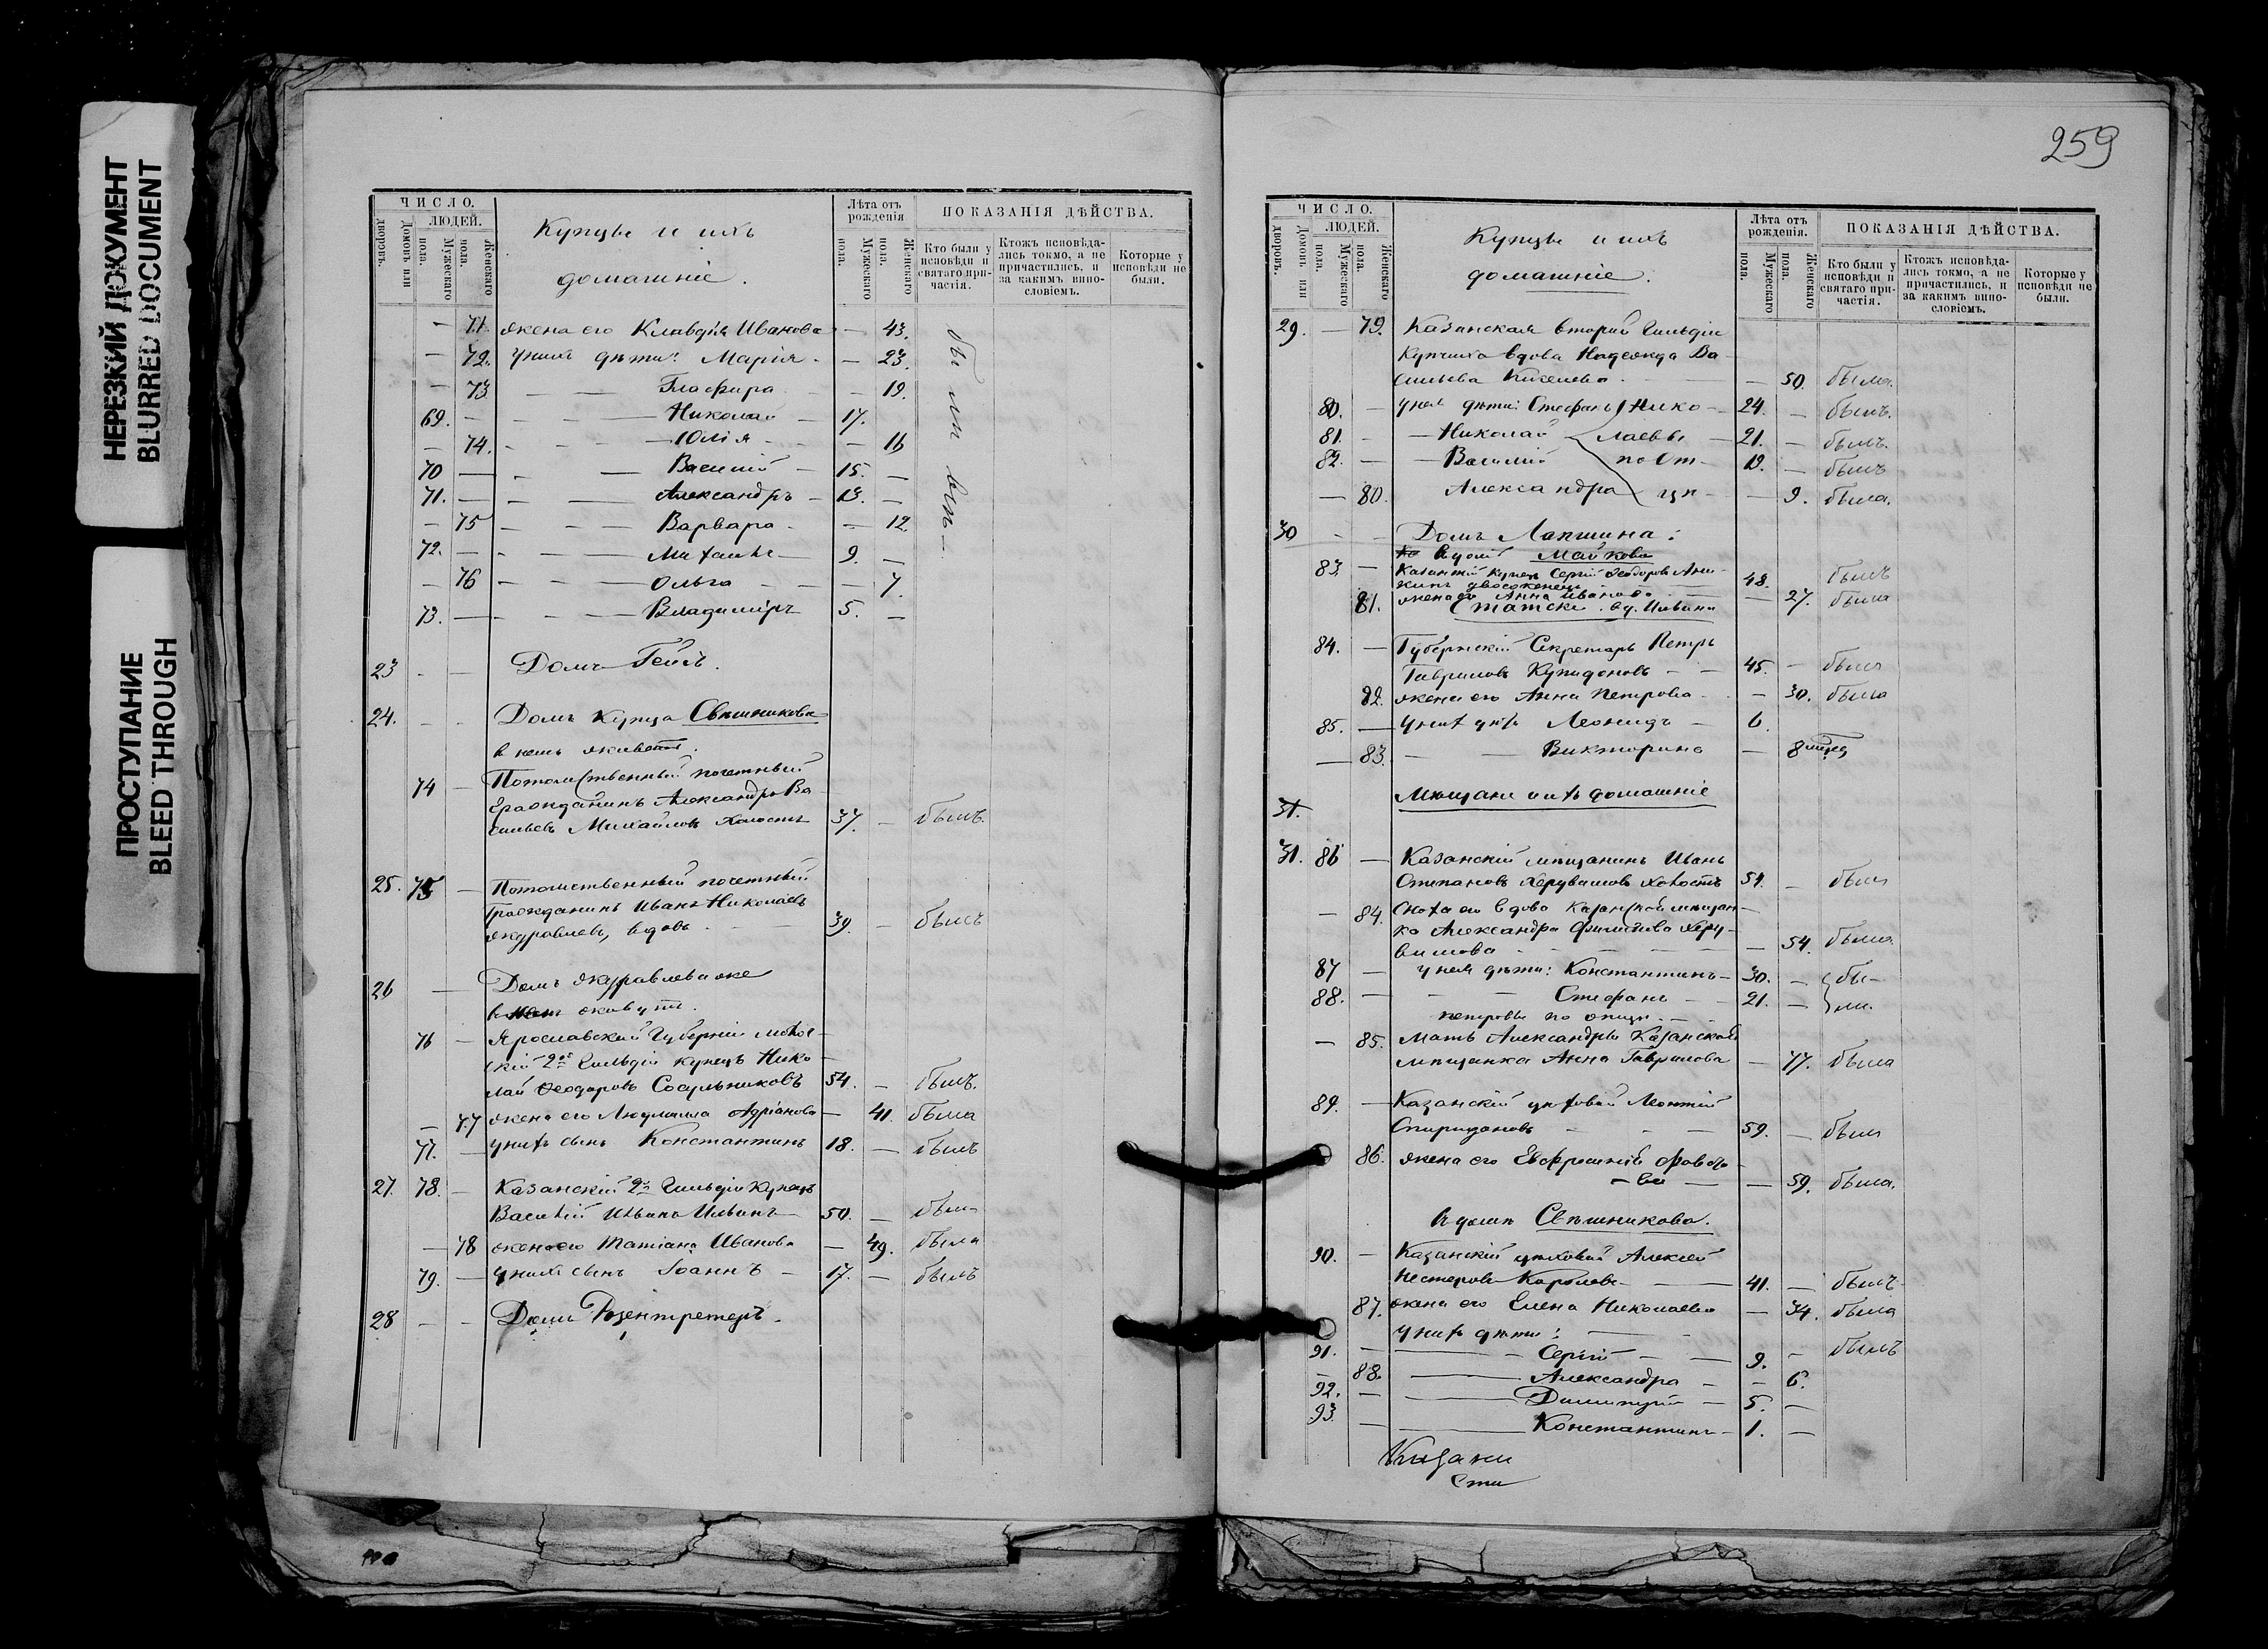 НЕРЕЗКИЙ ДОКУМЕНТ
BLURRED DOCUMENT
ПРОСТУПАНИЕ
BLEED THROUGH
ЧИСЛО.
ЛЮДЕЙ.
Домовъ или дворовъ.
Мужескаго пола.
Женскаго пола.
Купцы и ихъ
домашніе.
Лѣта отъ рожденія
Мужескаго пола.
Женскаго пола.
ПОКАЗАНІЯ ДѢЙСТВА.
Кто были у исповѣди и святаго причастія.
Ктожъ исповѣдались токмо, а не причастились, и за какимъ винословіемъ.
Которые у исповѣди не были.
— 71. жена его Клавдія Иванова — 43.
— 72. у нихъ дѣти: Марія — 23.
— 73. Глафира — 19.
69. — Николай — 17.
— 74. — Юлія — 16
70 — Василій — 15. —
71. — Александръ — 13. —
— 75 — Варвара — 12.
72. — Михаилъ — 9. —
— 76 — Ольга — 7.
73. — Владиміръ 5. —
были вси
23 — — Домъ Гейсъ.
24. — — Домъ купца Свѣшникова
в немъ живетъ.
74 — Потомственный почетный
Гражданинъ Александръ Ва-
сильевъ Михайловъ холостъ 37. — былъ.
25. 75 — Потомственный почетный
Гражданинъ Иванъ Николаевъ
Журавлевъ, вдовъ 39. — былъ
26 — Домъ Журавлева же
в живутъ.
76 — Ярославской Губерніи
2ой Гильдіи купецъ Нико-
лай Ѳеодоровъ 54. — былъ.
— 77 жена его Людмила Адріанова — 41. была
77. — у нихъ сынъ Константинъ 18. — былъ
27. 78. — Казанскій 2й Гильдіи Купецъ
Василій Ивановъ Ильинъ 50. — былъ
— 78 жена его Татіана Иванова — 49. была
79. — у нихъ сынъ Іоаннъ — 17. — былъ
28 — — Домъ Розентретеръ.
259
ЧИСЛО.
ЛЮДЕЙ.
Домовъ или дворовъ.
Мужескаго пола.
Женскаго пола.
Купцы и ихъ
домашніе.
Лѣта отъ рожденія.
Мужескаго пола.
Женскаго пола.
ПОКАЗАНІЯ ДѢЙСТВА.
Кто были у исповѣди и святаго причастія.
Ктожъ исповѣдались токмо, а не причастились, и за какимъ винословіемъ.
Которые у исповѣди не были.
29. — 79. Казанская второй Гильдіи
Купчиха вдова Надежда Ва-
сильева — 50. была.
80. — у ней дѣти: Стефанъ Нико- 24. — былъ.
81. — Николай лаевы 21. — былъ.
82. — Василій по От- 19. — былъ
— 80. Александра цу — 9. была.
30 — — Домъ Лапшина:
в домѣ Майкова
83. — Казанскій Купецъ Сергій Ѳеодоровъ
двоеженецъ 48. былъ
81. жена его Анна Иванова — 27. была
84. — Губернскій Секретарь Петръ
Гавриловъ Купидоновъ — 45. — былъ
82. жена его Анна Петрова — 30. была
85. — у них дѣти Леонидъ — 6.
— 83. — Викторина — 8 мѣсяц
Мѣщане и ихъ домашніе
31.
31. 86 — Казанскій мѣщанинъ Иванъ
Степановъ Херувимовъ холостъ 51. — былъ
— 84. Сноха его вдова Казанской мѣщан-
ка Александра Херу-
вимова — 54. была.
87 — у ней дѣти: Константинъ — 30. — бы-
88. — Стефанъ — 21. — ли.
Петровы по отцу.
— 85. Мать Александры Казанской
мѣщанка Анна Гаврилова — 77. была
89. — Казанскій цеховой Леонтій
Спиридоновъ — 59. — былъ
86. жена его Евфросинія
— ва — 59. была.
В домѣ Свѣшникова.
90. — Казанскій цеховой Алексей
Нестеровъ — 41. — былъ
87. жена его Елена Николаева — 34. была
у нихъ дѣти:
91. — Сергій — 9. — былъ
— 88. Александра — — 6.
92. — Димитрій — 5. —
93. — Константинъ — 1. —